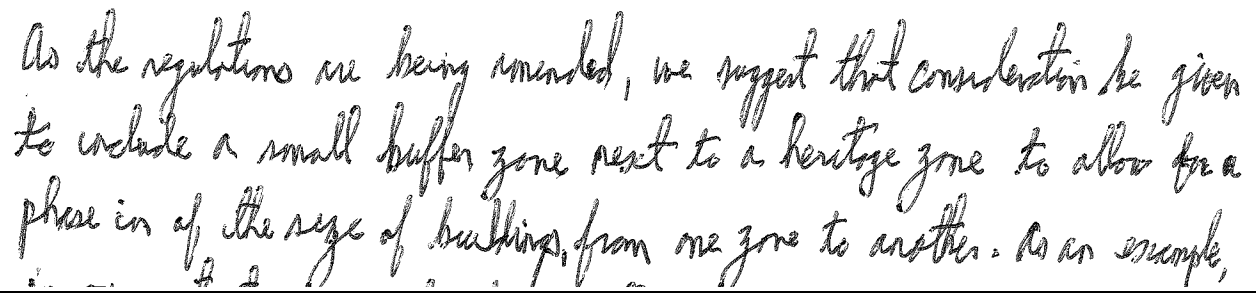 As the regulations are being amended, we suggest that consideration be given
to include a small buffer zone next to a heritage zone to allow for a
phase in of the size of buildings, from one zone to another. As an example,